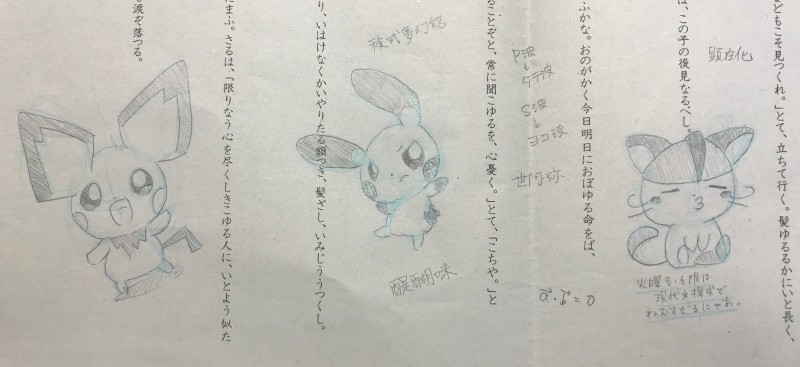 どもこそ見つくれ。」とて、立ちて行く。髪ゆるるかにいと長く、
顕在化
は、この子の後見なるべし。
火曜5・6限は
現代文探究で
ねむすぎるにゃあ。
ふかな。おのがかく今日明日におぼゆる命をば、
P波
↓
タテ波
S波
↓
ヨコ波
世阿弥
a⃗・b⃗=0
ることぞと、常に聞こゆるを、心憂く。」とて、「こちや。」と
複式夢幻能
醍醐味
り、いはけなくかいやりたる額つき、髪ざし、いみじううつくし。
たまふ。さるは、「限りなう心を尽くしきこゆる人に、いとよう似た
る涙ぞ落つる。